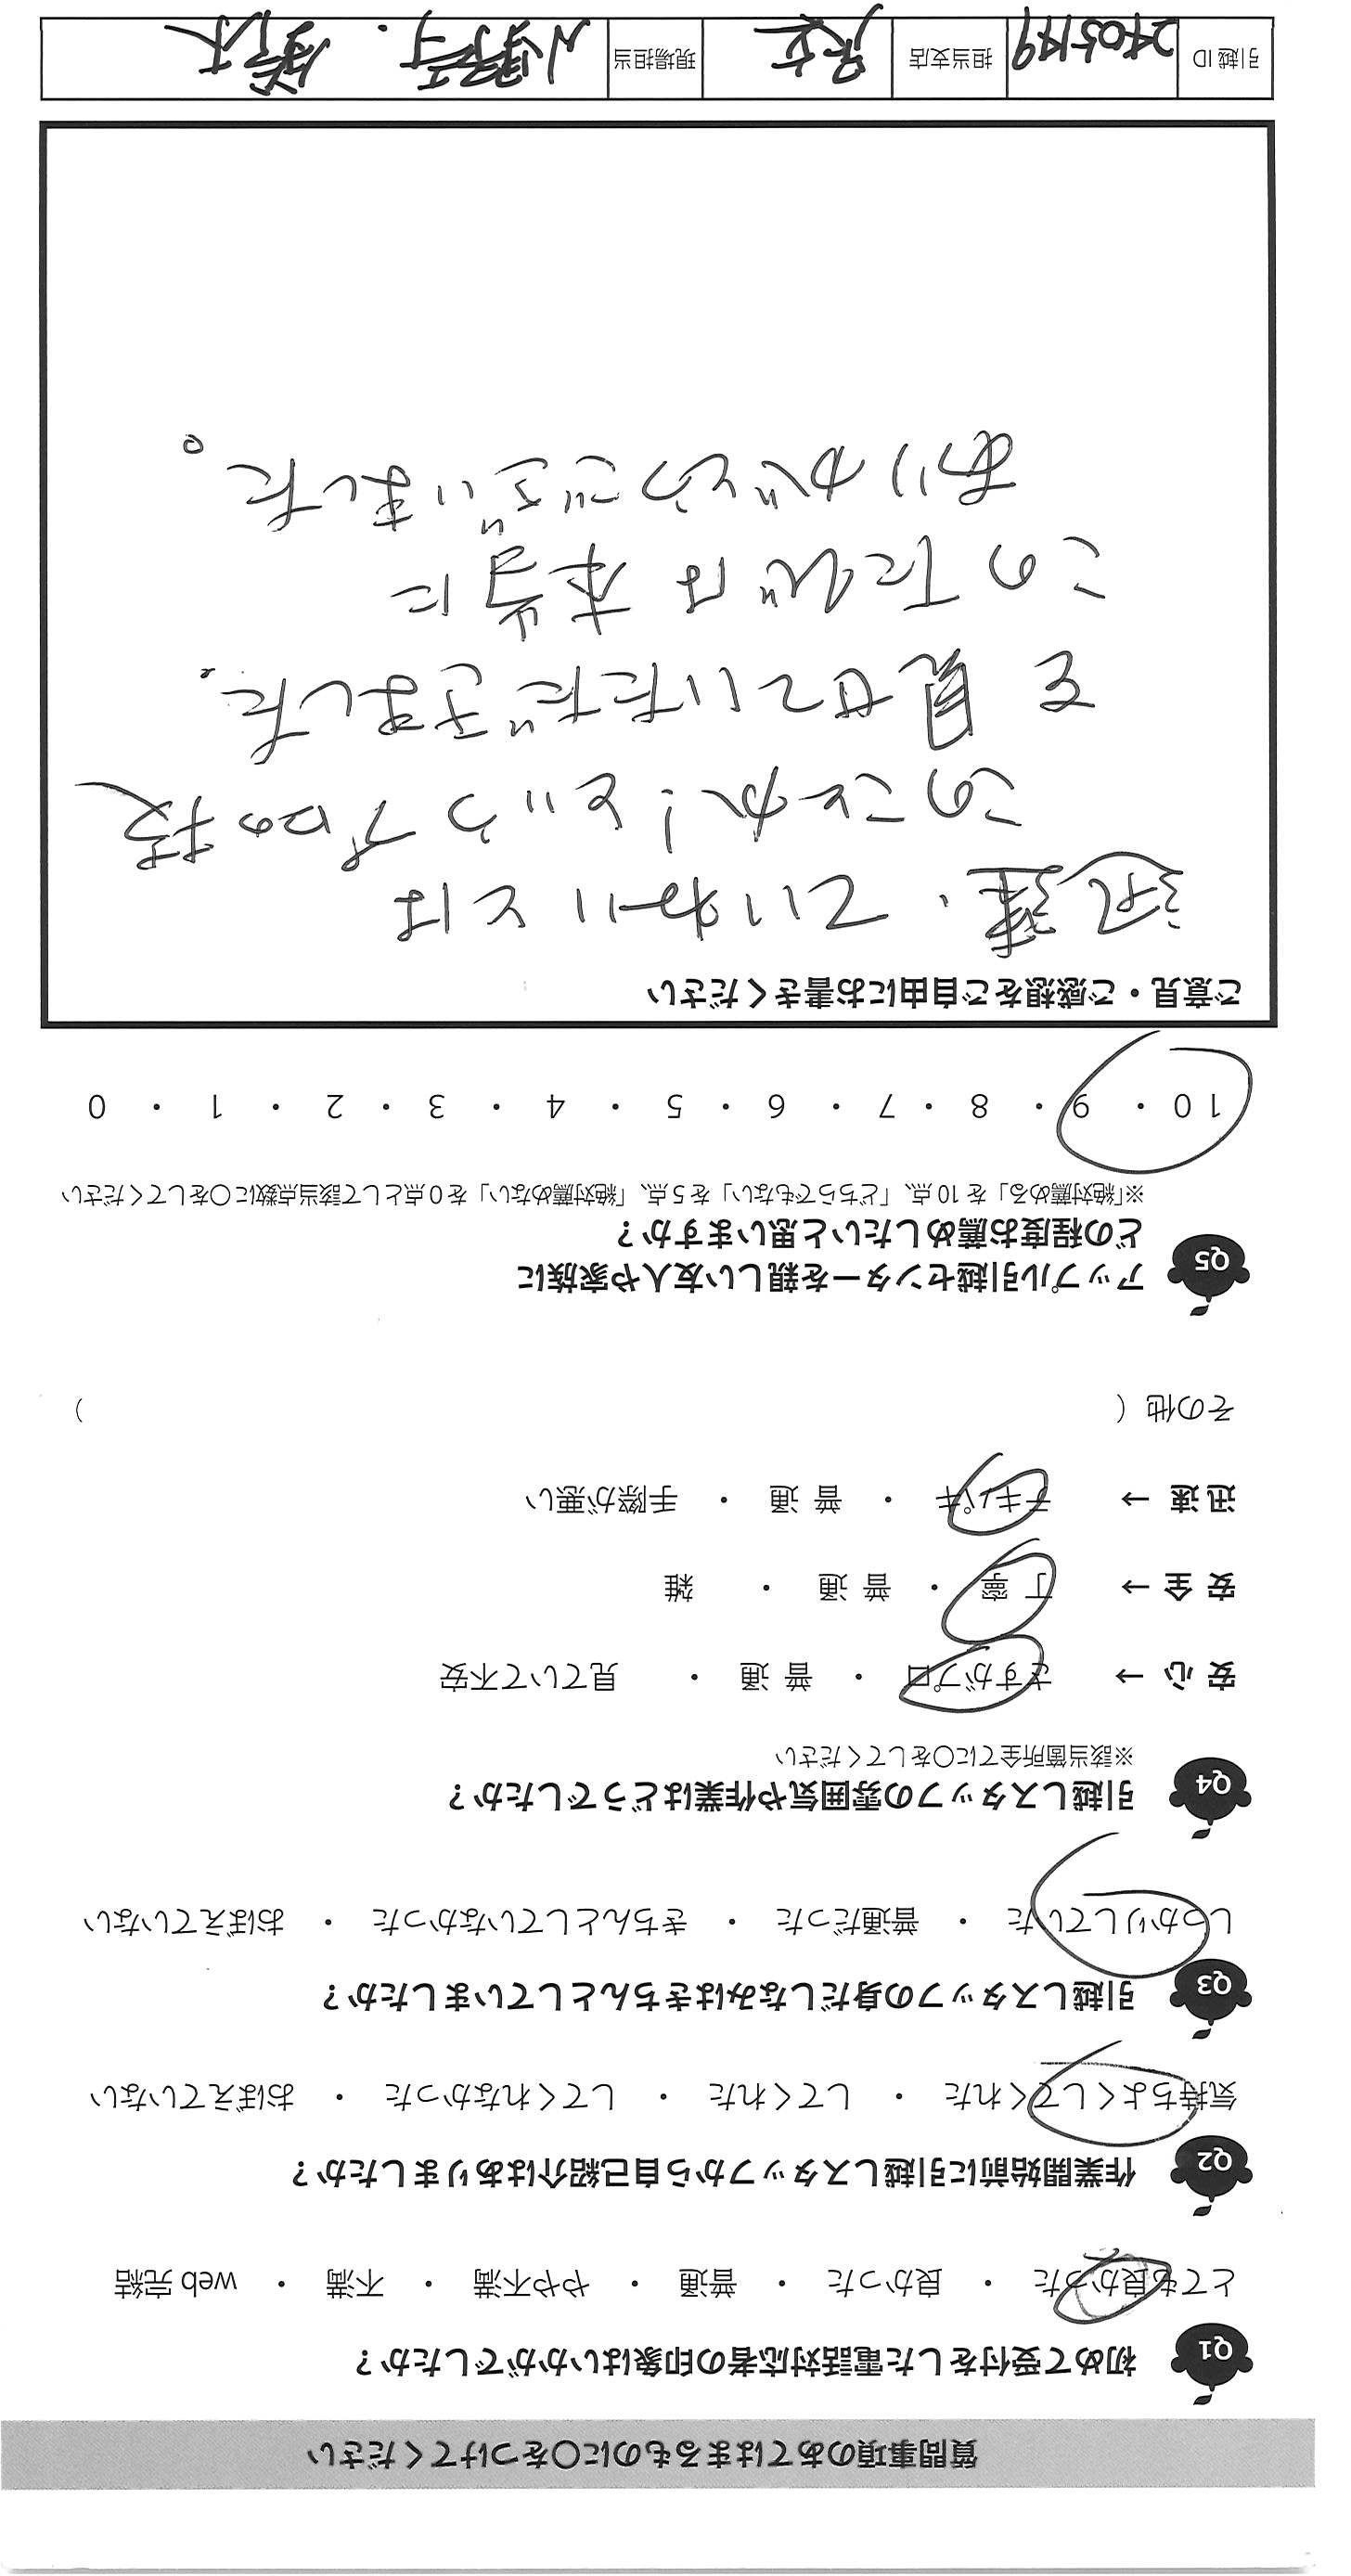 質問事項のあてはまるものに〇をつけてください
Q1 初めて受付をした電話対応者の印象はいかがでしたか？
とても良かった ・ 良かった ・ 普通 ・ やや不満 ・ 不満 ・ web 完結
Q2 作業開始前に引越しスタッフから自己紹介はありましたか？
気持ちよくしてくれた ・ してくれた ・ してくれなかった ・ おぼえていない
Q3 引越しスタッフの身だしなみはきちんとしていましたか？
しっかりしていた ・ 普通だった ・ きちんとしていなかった ・ おぼえていない
Q4 引越しスタッフの雰囲気や作業はどうでしたか？
※該当箇所全てに〇をしてください
安心 → さすがプロ ・ 普通 ・ 見ていて不安
安全 → 丁寧 ・ 普通 ・ 雑
迅速 → テキパキ ・ 普通 ・ 手際が悪い
その他（ ）
Q5 アップル引越センターを親しい友人や家族に
どの程度お薦めしたいと思いますか？
※「絶対薦める」を10点、「どちらでもない」を5点、「絶対薦めない」を0点として該当点数に〇をしてください
10 ・ 9 ・ 8 ・ 7 ・ 6 ・ 5 ・ 4 ・ 3 ・ 2 ・ 1 ・ 0
ご意見・ご感想をご自由にお書きください
迅速、ていねいとは
このことか！というプロの技
を見せていただきました。
このたびは本当に
ありがとうございました。
引越ID 担当支店 現場担当